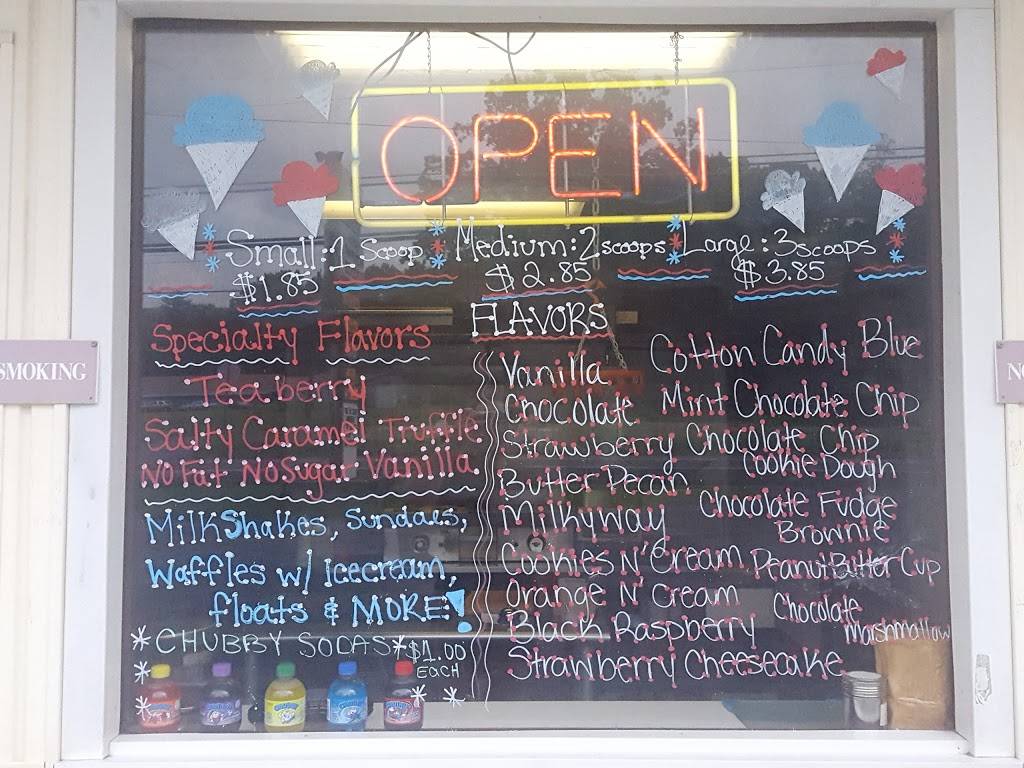 OPEN
Small: 1 Scoop
$1.85
Medium: 2 scoops
$2.85
Large: 3 scoops
$3.85
SMOKING
NO
Specialty Flavors
Teaberry
Salty Caramel Truffle
No Fat No Sugar Vanilla
MilkShakes, Sundaes,
Waffles w/ Icecream,
floats & MORE!
CHUBBY SODAS
$1.00
EACH
FLAVORS
Vanilla
Chocolate
Strawberry
Butter Pecan
Milkyway
Cookies N' Cream
Orange N' Cream
Black Raspberry
Strawberry Cheesecake
Cotton Candy Blue
Mint Chocolate Chip
Chocolate Chip
Cookie Dough
Chocolate Fudge
Brownie
Peanut Butter Cup
Chocolate
Marshmallow